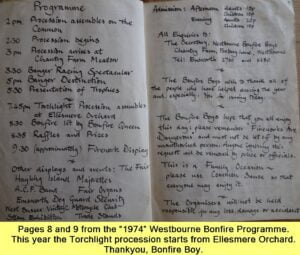 Programme
2 pm Procession assembles on the Common
2.30 Procession begins
3 pm Procession arrives at Chantry Farm Meadow
3.30 Banger Racing Spectacular
5 pm Banger Destruction
5.30 Presentation of Trophies
7.45pm Torchlight Procession assembles at Ellesmere Orchard
8.30 Bonfire lit by Bonfire Queen
8.35 Raffles and Prizes
9.30 (approximately) Firework Display
Other displays and events: The Fair
Hayling Island Majorettes
A.C.F. Band Fair Organs
Emsworth Dog Guard Security
Vintage Motorcycle Club
Stam Exhibition Trade Stands
Admission: Afternoon Adults 15p
Children 10p
Evening Adults 25p
Children 10p
All Enquiries to:
The Secretary, Westbourne Bonfire Boys
Chantry Farm, Foxbury Lane, Westbourne
Tel: Emsworth
The Bonfire Boys wish to thank all of
the people who have helped during the year
and, especially, You for coming
The Bonfire Boys hope that you all enjoy
this day; please remember Fireworks Are
Dangerous and must not be let off by any
unauthorised person. Anyone ignoring this
request will be removed by police or officials.
This is a Family Occasion -
please use Common Sense so that
everyone may enjoy it.
The Organisers will not be held
responsible for any loss, damage or accident
Pages 8 and 9 from the "1974" Westbourne Bonfire Programme.
This year the Torchlight procession starts from Ellesmere Orchard.
Thankyou, Bonfire Boy.